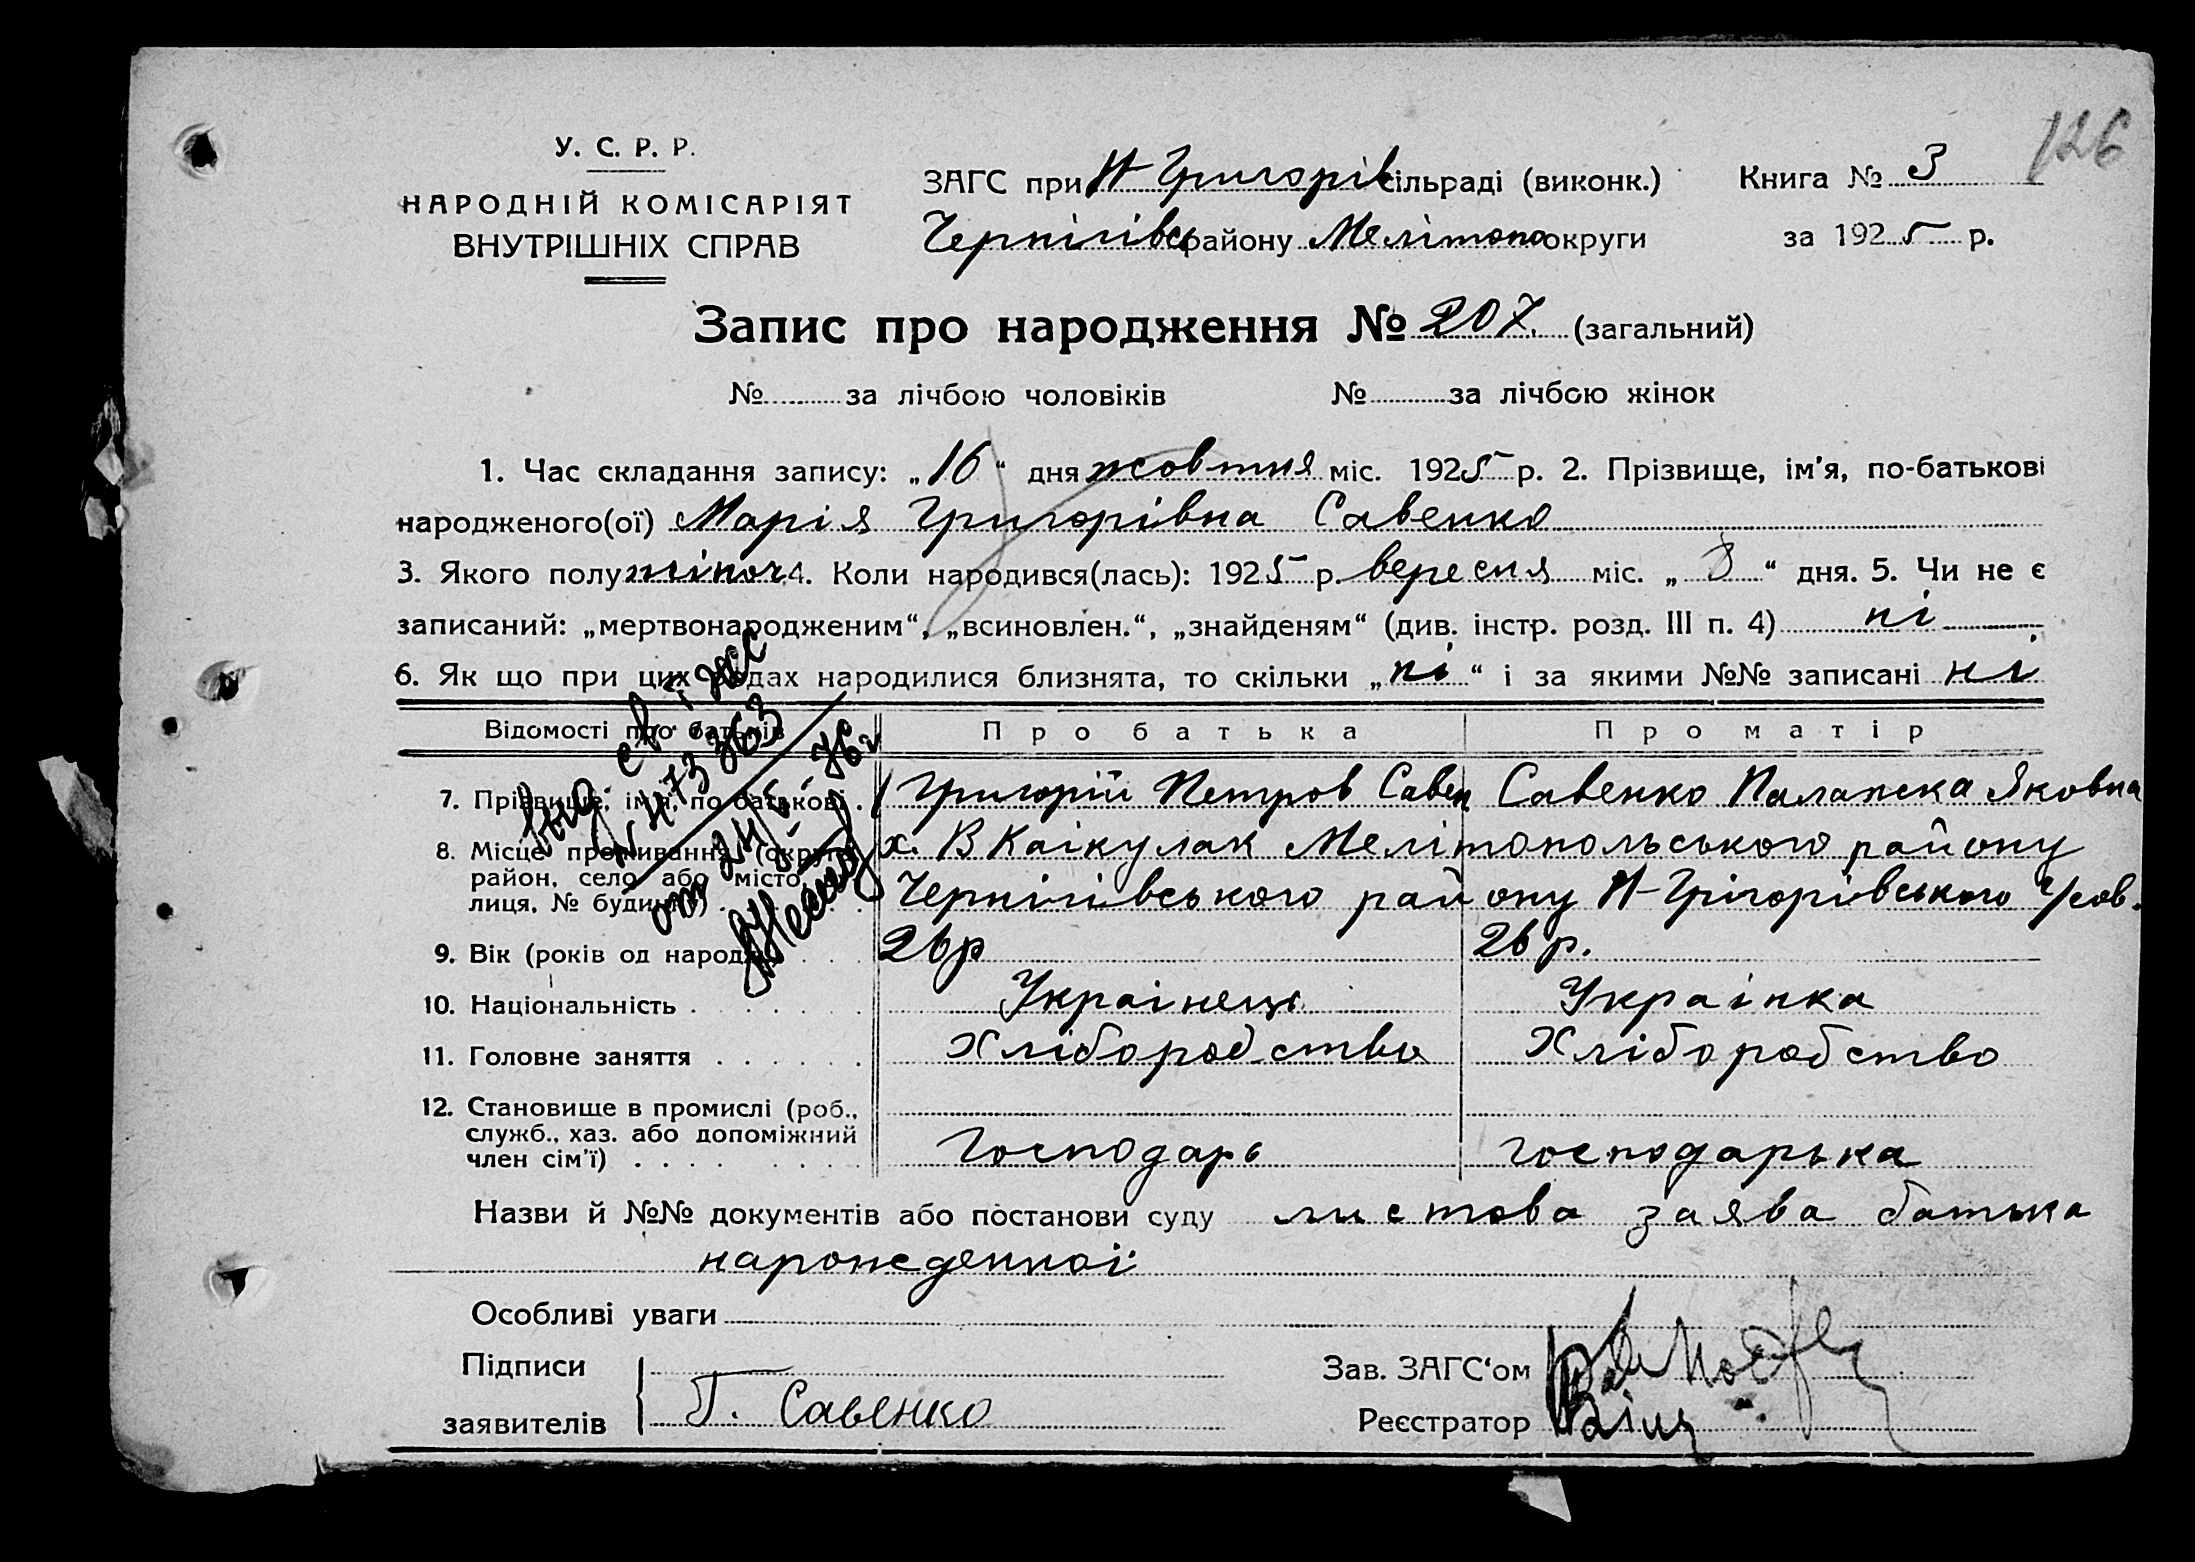 126
У. С. Р. Р.
НАРОДНІЙ КОМІСАРІЯТ
ВНУТРІШНІХ СПРАВ
ЗАГС при Н Григорів сільраді (виконк.) Книга № 3
Чернігівсь району Мелітопо округи за 1925 р.
Запис про народження № 207. (загальний)
№ за лічбою чоловіків № за лічбою жінок
1. Час складання запису: „16“ дня жовтня міс. 1925 р. 2. Прізвище, ім'я, по-батькові
народженого(ої) Марія Григорівна Савенко
3. Якого полу жіноч. 4. Коли народився(лась): 1925 р. вересня міс. „8“ дня. 5. Чи не є
записаний: „мертвонародженим“, „всиновлен.“, „знайденям“ (див. інстр. розд. III п. 4) ні
6. Як що при цих родах народилися близнята, то скільки „ні“ і за якими №№ записані ні
Відомості про батьків Про батька Про матір
7. Прізвище, ім'я, по батькові. Григорій Петров Савен Савенко Палажка Яковна
8. Місце проживання (округа, район, село або місто, лиця, № будинку) х. В Каікулак Мелітопольського району
Чернігівського району Н-Григорівського
9. Вік (років од народж. 26р 26 р.
10. Національність Украінець Украінка
11. Головне заняття Хлібородство Хліборобство
12. Становище в промислі (роб.,
служб., хаз. або допоміжний
член сім'ї) Господарь господарька
выд. св
N 473363
от 24/5-76г
Назви й №№ документів або постанови суду листова заява батька
нарожденноі
Особливі уваги
Підписи
заявителів Г. Савенко
Зав. ЗАГС'ом
Реєстратор